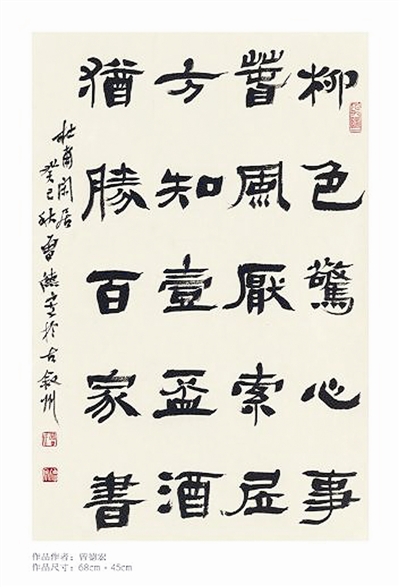 柳色驚心事
萅風厭索居
方知壹盃酒
猶勝百家書
杜甫閑居
癸巳秋曾德宏於古敘州
作品作者:曾德宏
作品尺寸:68cm×45cm